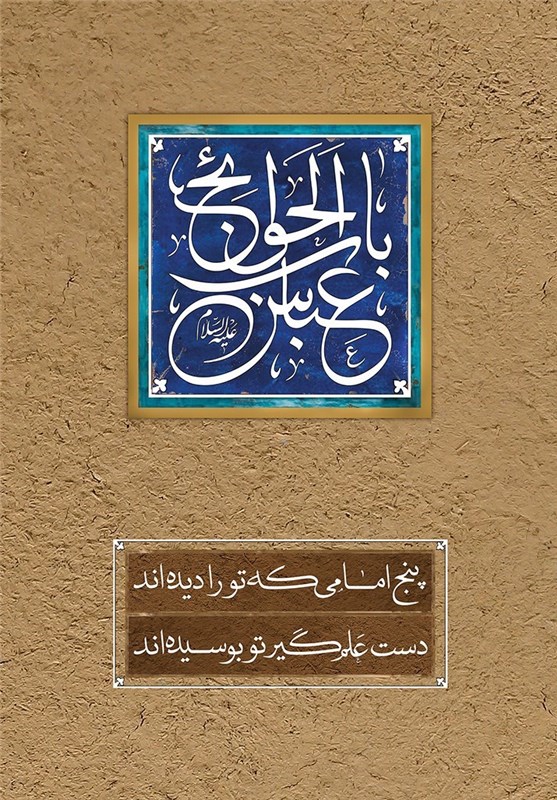 باب الحوائج
عباس
علیه السلام
پنج امامی که تو را دیده‌اند
دست عَلم‌گیر تو بوسیده‌اند